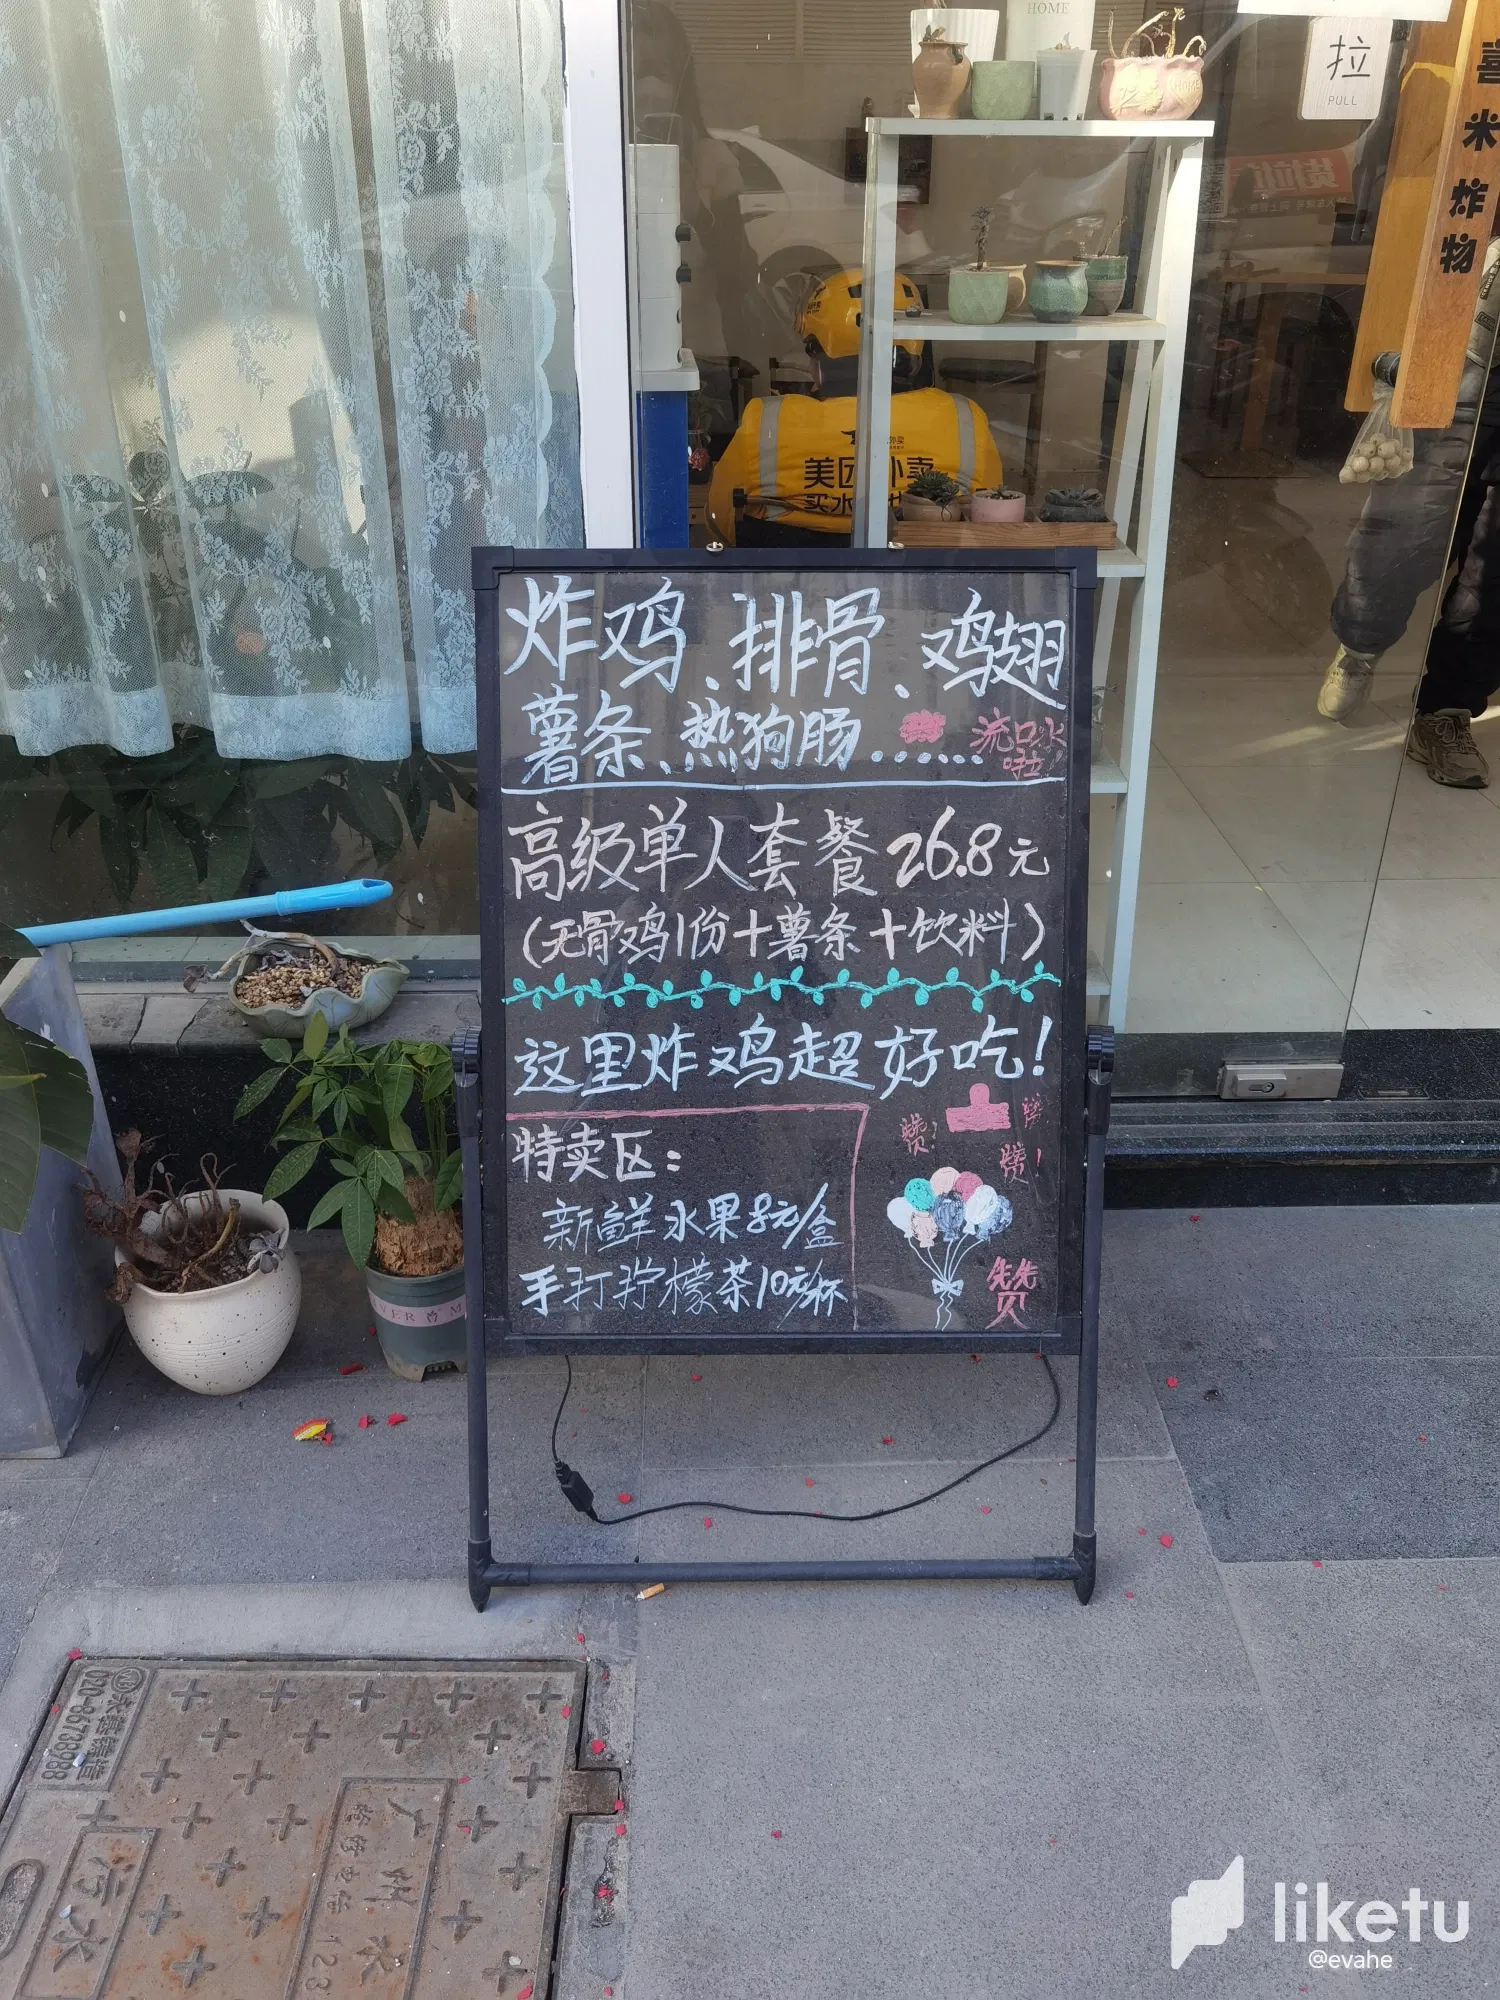 HOME
拉
PULL
喜米炸物
美团外卖
炸鸡、排骨、鸡翅
薯条、热狗肠......
流口水
啦!
高级单人套餐26.8元
(无骨鸡1份+薯条+饮料)
这里炸鸡超好吃!
特卖区:
新鲜水果8元/盒
手打拧檬茶10元/杯
赞!
赞
赞!
赞
020-86738988
广州水
123
污水
liketu
@evahe